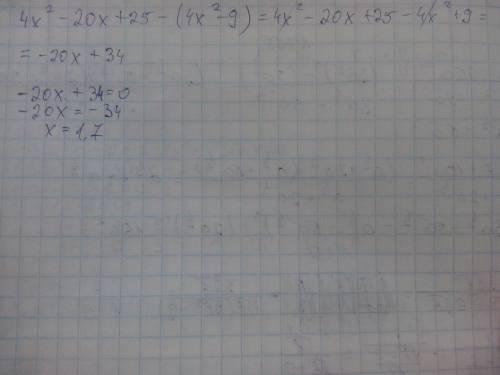 4x² - 20x + 25 - (4x² - 9) = 4x² - 20x + 25 - 4x² + 9 =
= -20x + 34
-20x + 34 = 0
-20x = -34
x = 1,7